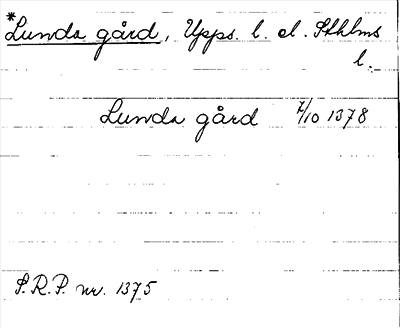 *Lunda gård, Upps. l. el. Sthlms
l.
Lunda gård 7/10 1378
S.R.P. nr. 1375